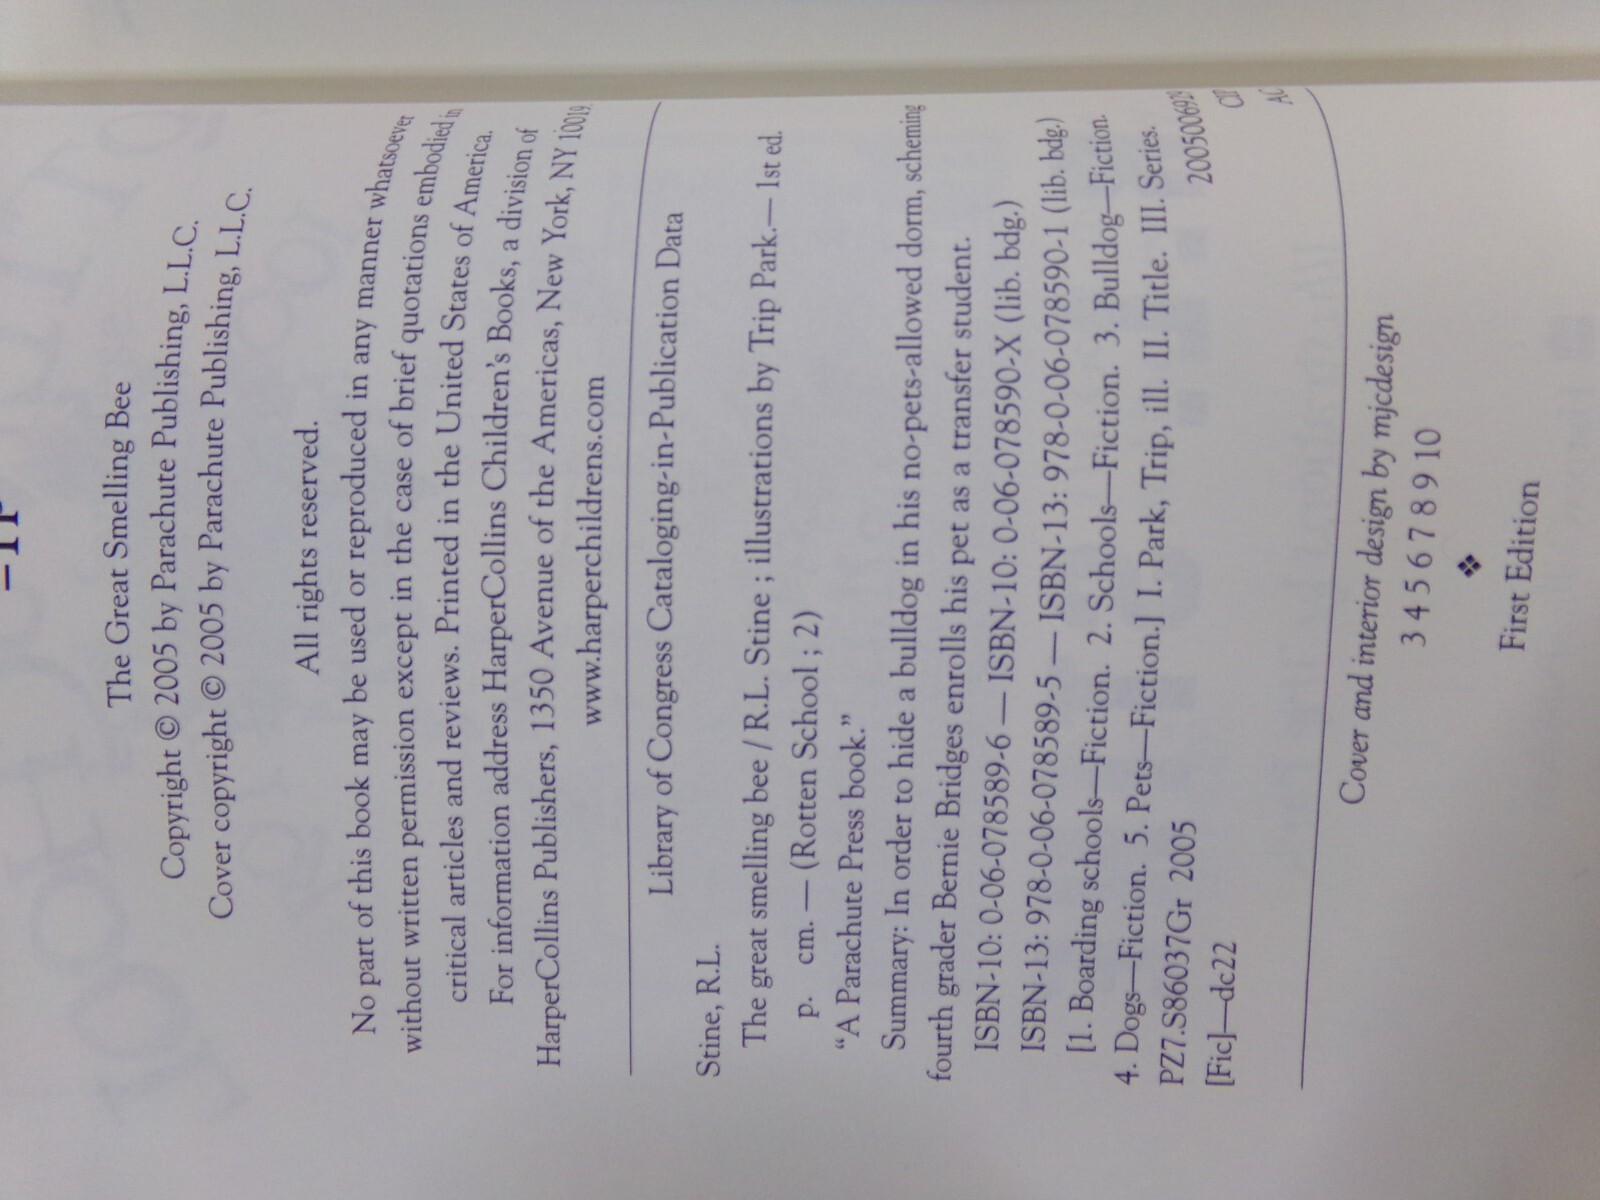 The Great Smelling Bee
Copyright © 2005 by Parachute Publishing, L.L.C.
Cover copyright © 2005 by Parachute Publishing, L.L.C.
All rights reserved.
No part of this book may be used or reproduced in any manner whatsoever
without written permission except in the case of brief quotations embodied in
critical articles and reviews. Printed in the United States of America.
For information address HarperCollins Children's Books, a division of
HarperCollins Publishers, 1350 Avenue of the Americas, New York, NY 10019.
www.harperchildrens.com
Library of Congress Cataloging-in-Publication Data
Stine, R.L.
The great smelling bee / R.L. Stine ; illustrations by Trip Park.— 1st ed.
p. cm. — (Rotten School ; 2)
“A Parachute Press book.”
Summary: In order to hide a bulldog in his no-pets-allowed dorm, scheming
fourth grader Bernie Bridges enrolls his pet as a transfer student.
ISBN-10: 0-06-078589-6 — ISBN-10: 0-06-078590-X (lib. bdg.)
ISBN-13: 978-0-06-078589-5 — ISBN-13: 978-0-06-078590-1 (lib. bdg.)
[1. Boarding schools—Fiction. 2. Schools—Fiction. 3. Bulldog—Fiction.
4. Dogs—Fiction. 5. Pets—Fiction.] I. Park, Trip, ill. II. Title. III. Series.
PZ7.S86037Gr 2005
[Fic]—dc22
CIP
AC
Cover and interior design by mjcdesign
3 4 5 6 7 8 9 10
❖
First Edition